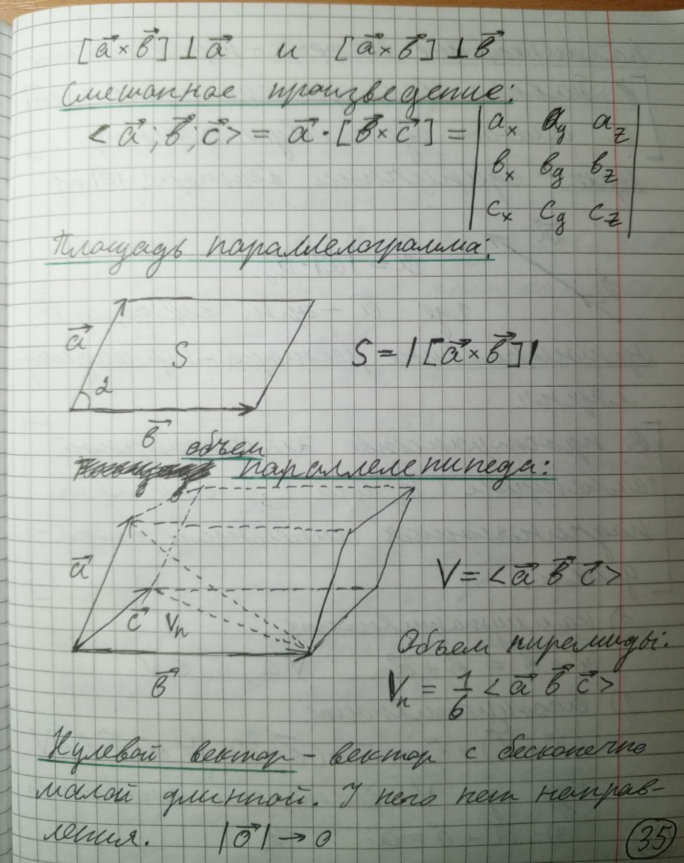 [a⃗×b⃗]⊥a⃗ и [a⃗×b⃗]⊥b⃗
Смешанное произведение:
<a⃗; b⃗; c⃗> = a⃗·[b⃗×c⃗] = | aₓ a_y a_z |
| bₓ b_y b_z |
| cₓ c_y c_z |
Площадь параллелограмма:
a⃗
S
S = |[a⃗×b⃗]|
α
b⃗
объем
параллелепипеда:
a⃗
V = <a⃗ b⃗ c⃗>
c⃗ Vп
Объем пирамиды:
b⃗
Vп = 1/6 <a⃗ b⃗ c⃗>
Нулевой вектор – вектор с бесконечно
малой длинной. У него нет направ-
ления. |o⃗| → 0
35